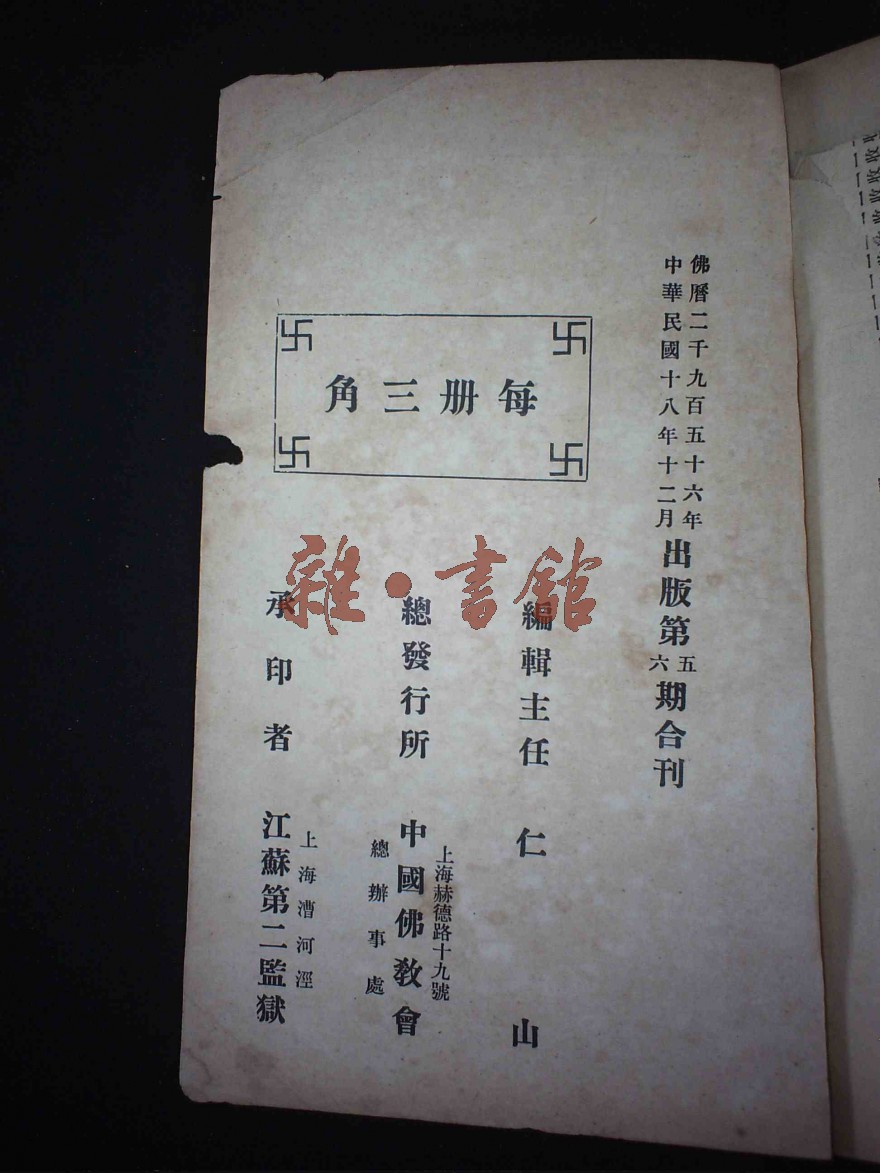 佛曆二千九百五十六年
中華民國十八年十二月
出版第五六期合刊
卐 卐
每册三角
卐 卐
編輯主任 仁山
上海赫德路十九號
總發行所 中國佛敎會
總辦事處
上海漕河涇
承印者 江蘇第二監獄
雜·書館